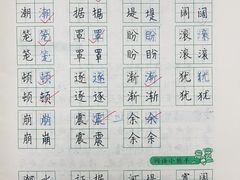 潮 潮 据 据 堤 堤 阔 阔
笼 笼 罩 罩 盼 盼 滚 滚
笼 笼 罩 罩 盼 盼 滚 滚
顿 顿 逐 逐 渐 渐 犹 犹
顿 顿 逐 逐 渐 渐 犹 犹
崩 崩 震 震 余 余
崩 崩 震 震 余 余
阅读小能手